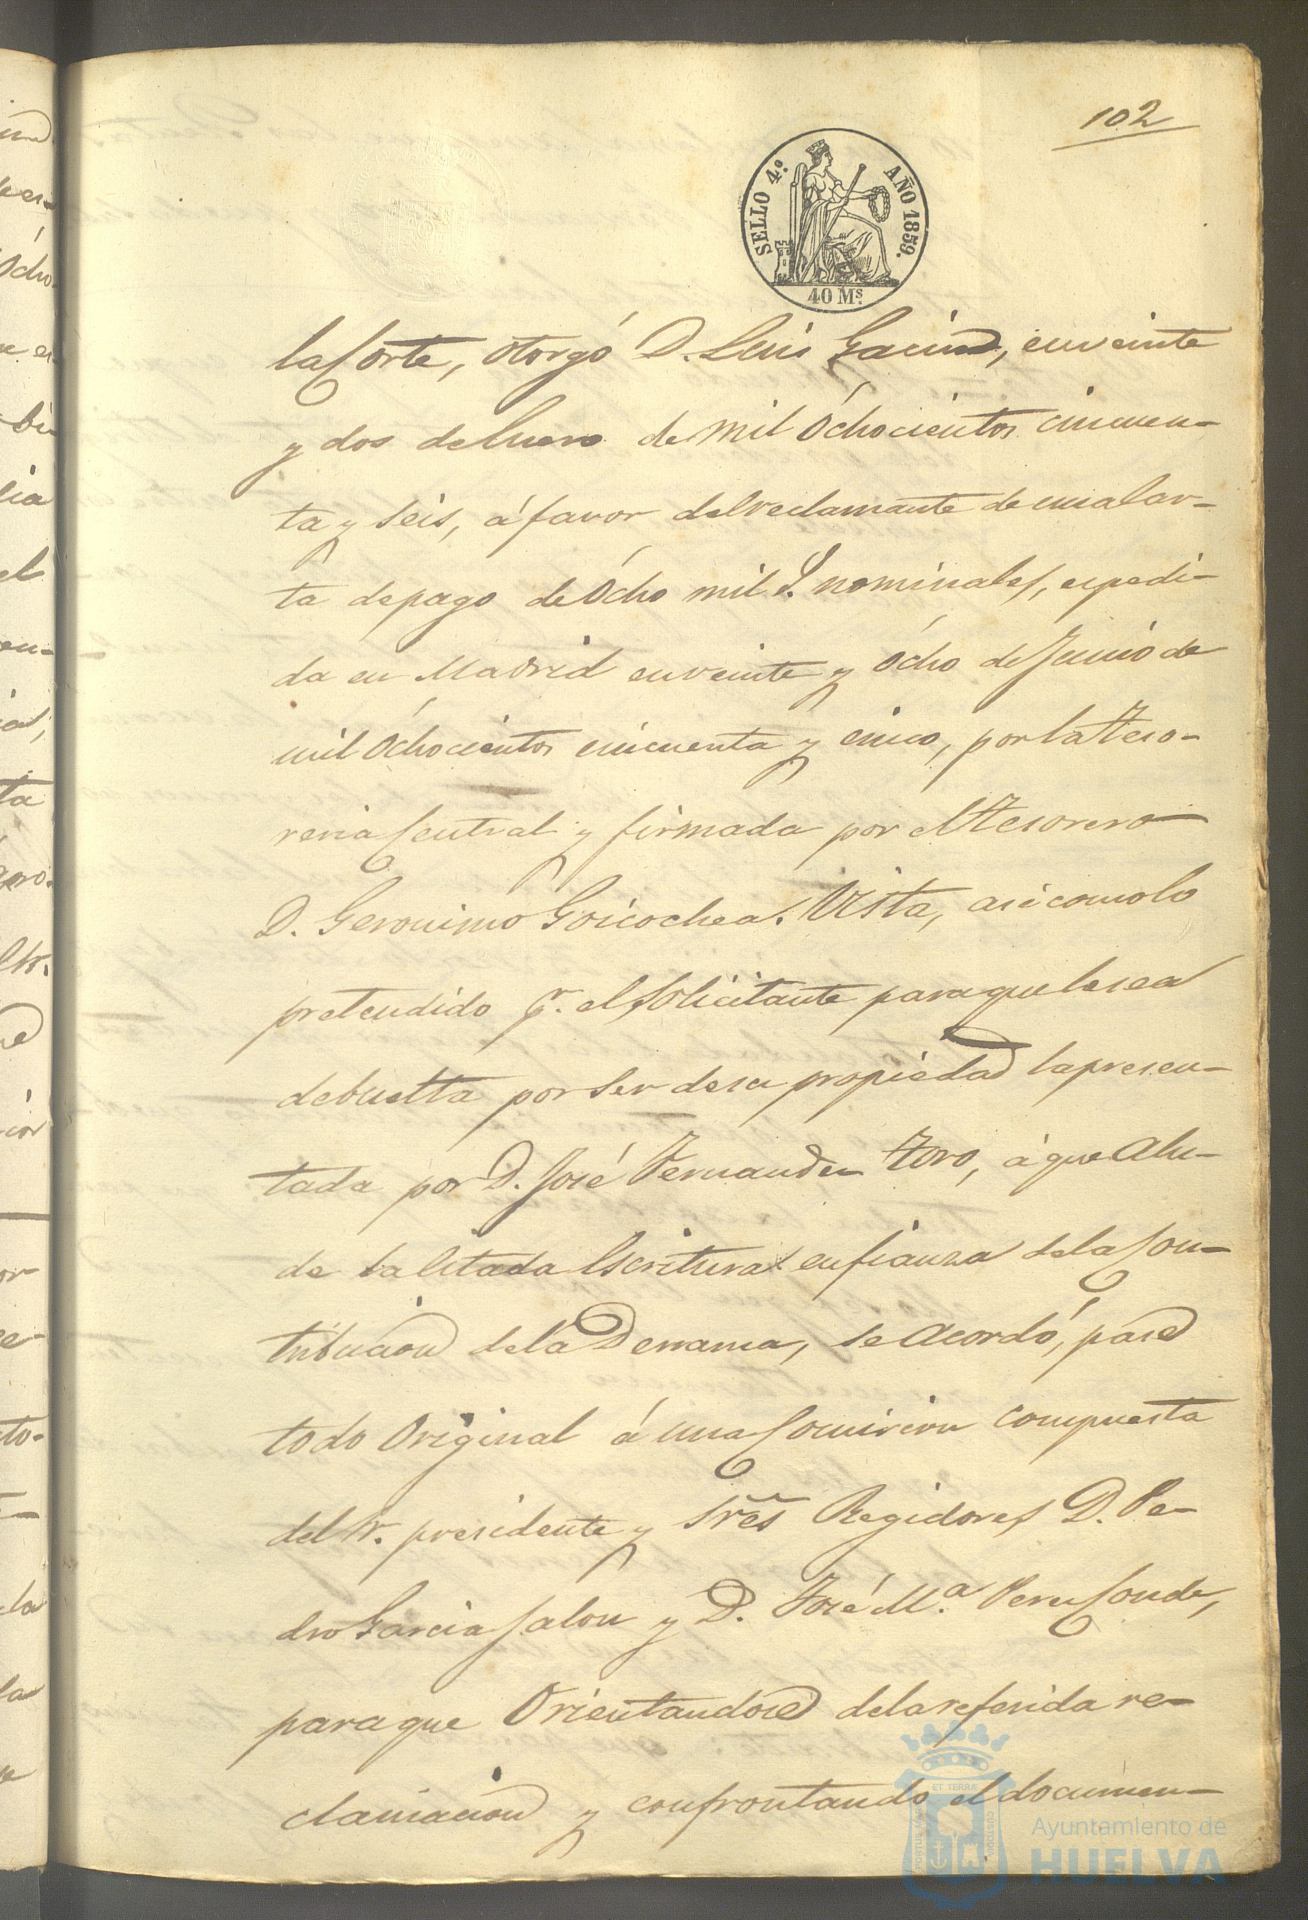 102
SELLO 4.º AÑO 1859.
40 Ms.
la Corte, otorgó D. Luis Gacind, en veinte
y dos de Enero de mil Ochocientos cincuen-
ta y seis, á favor del reclamante de una Car-
ta de pago de Ocho mil nominales, espedi-
da en Madrid en veinte y Ocho de Junio de
mil Ochocientos cincuenta y cinco, por la Teso-
reria Central y firmada por el Tesorero
D. Geronimo Goicochea. Vista, asi como lo
pretendido pr. el Solicitante para que le sea
debuelta por ser de su propiedad la presen-
tada por D. José Fernandez Toro, á que Alu-
de la Citada Escritura en fianza de la Con-
tribucion de la Derrama, se acordó, pase
todo Original á una Comision compuesta
del Sr. presidente y Sres Regidores D. Pe-
dro Garcia Jalon y D. José Mª. Perez Conde,
para que Orientandose de la referida re-
clamacion y confrontando el documen-
ET TERRÆ
Ayuntamiento de
HUELVA